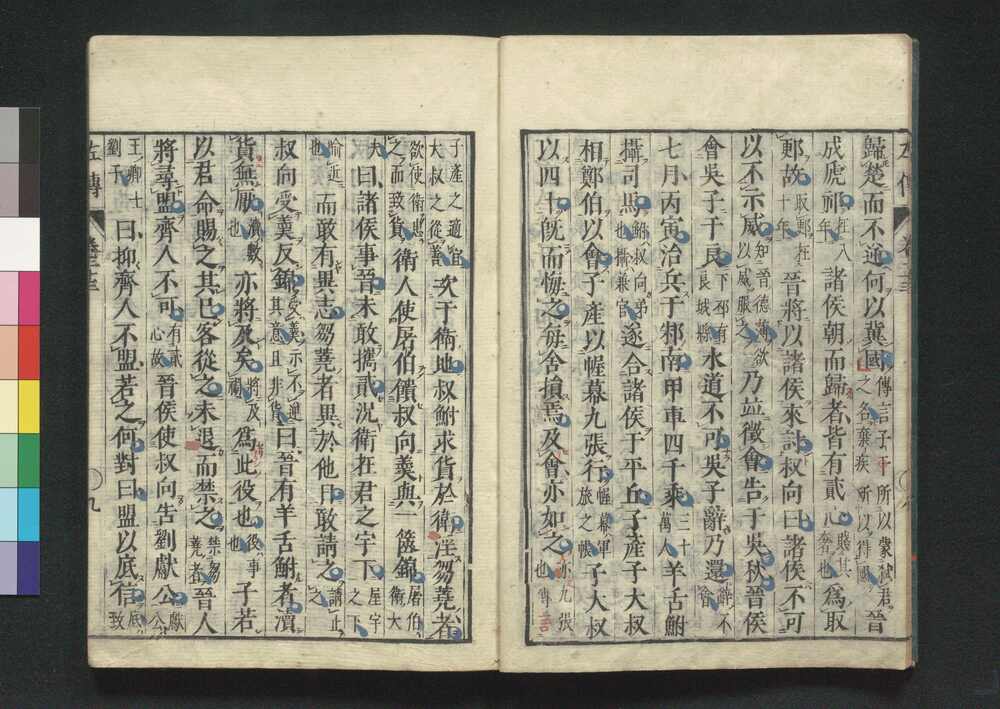 歸楚而不逆何以冀國傳言子干所以蒙弒君之名棄疾所以得國晉
成虒祁在八年諸侯朝而歸者皆有貳心賤其奢也為取
郠故取郠在十年晉將以諸侯來討叔向曰諸侯不可
以不示威知晉德薄欲以威服之乃並徵會告于吳秋晉侯
會吳子于良下邳有良城縣水道不可吳子辭乃還辭不會
七月丙寅治兵于邾南甲車四千乘三十萬人羊舌鮒
攝司馬鮒叔向弟也攝兼官遂合諸侯于平丘子產子大叔
相鄭伯以會子產以幄幕九張行幄幕軍旅之帳子大叔
以四十既而悔之每舍損焉及會亦如之亦九張也傳言
子產之適宜大叔之從善次于衛地叔鮒求貨於衛淫芻蕘者
欲使衛患之而致貨衛人使屠伯饋叔向羹與一篋錦屠伯衛大
夫曰諸侯事晉未敢攜貳況衛在君之宇下屋宇之下
喻近也而敢有異志芻蕘者異於他日敢請之請止之
叔向受羹反錦受羹示不逆其意且非貨曰晉有羊舌鮒者瀆
貨無厭瀆數也亦將及矣將及禍為此役也役事也子若
以君命賜之其已客從之未退而禁之禁芻蕘者晉人
將尋盟齊人不可有貳心故晉侯使叔向告劉獻公獻公
王卿士劉子曰抑齊人不盟若之何對曰盟以底信底致
左傳
卷二十三
九